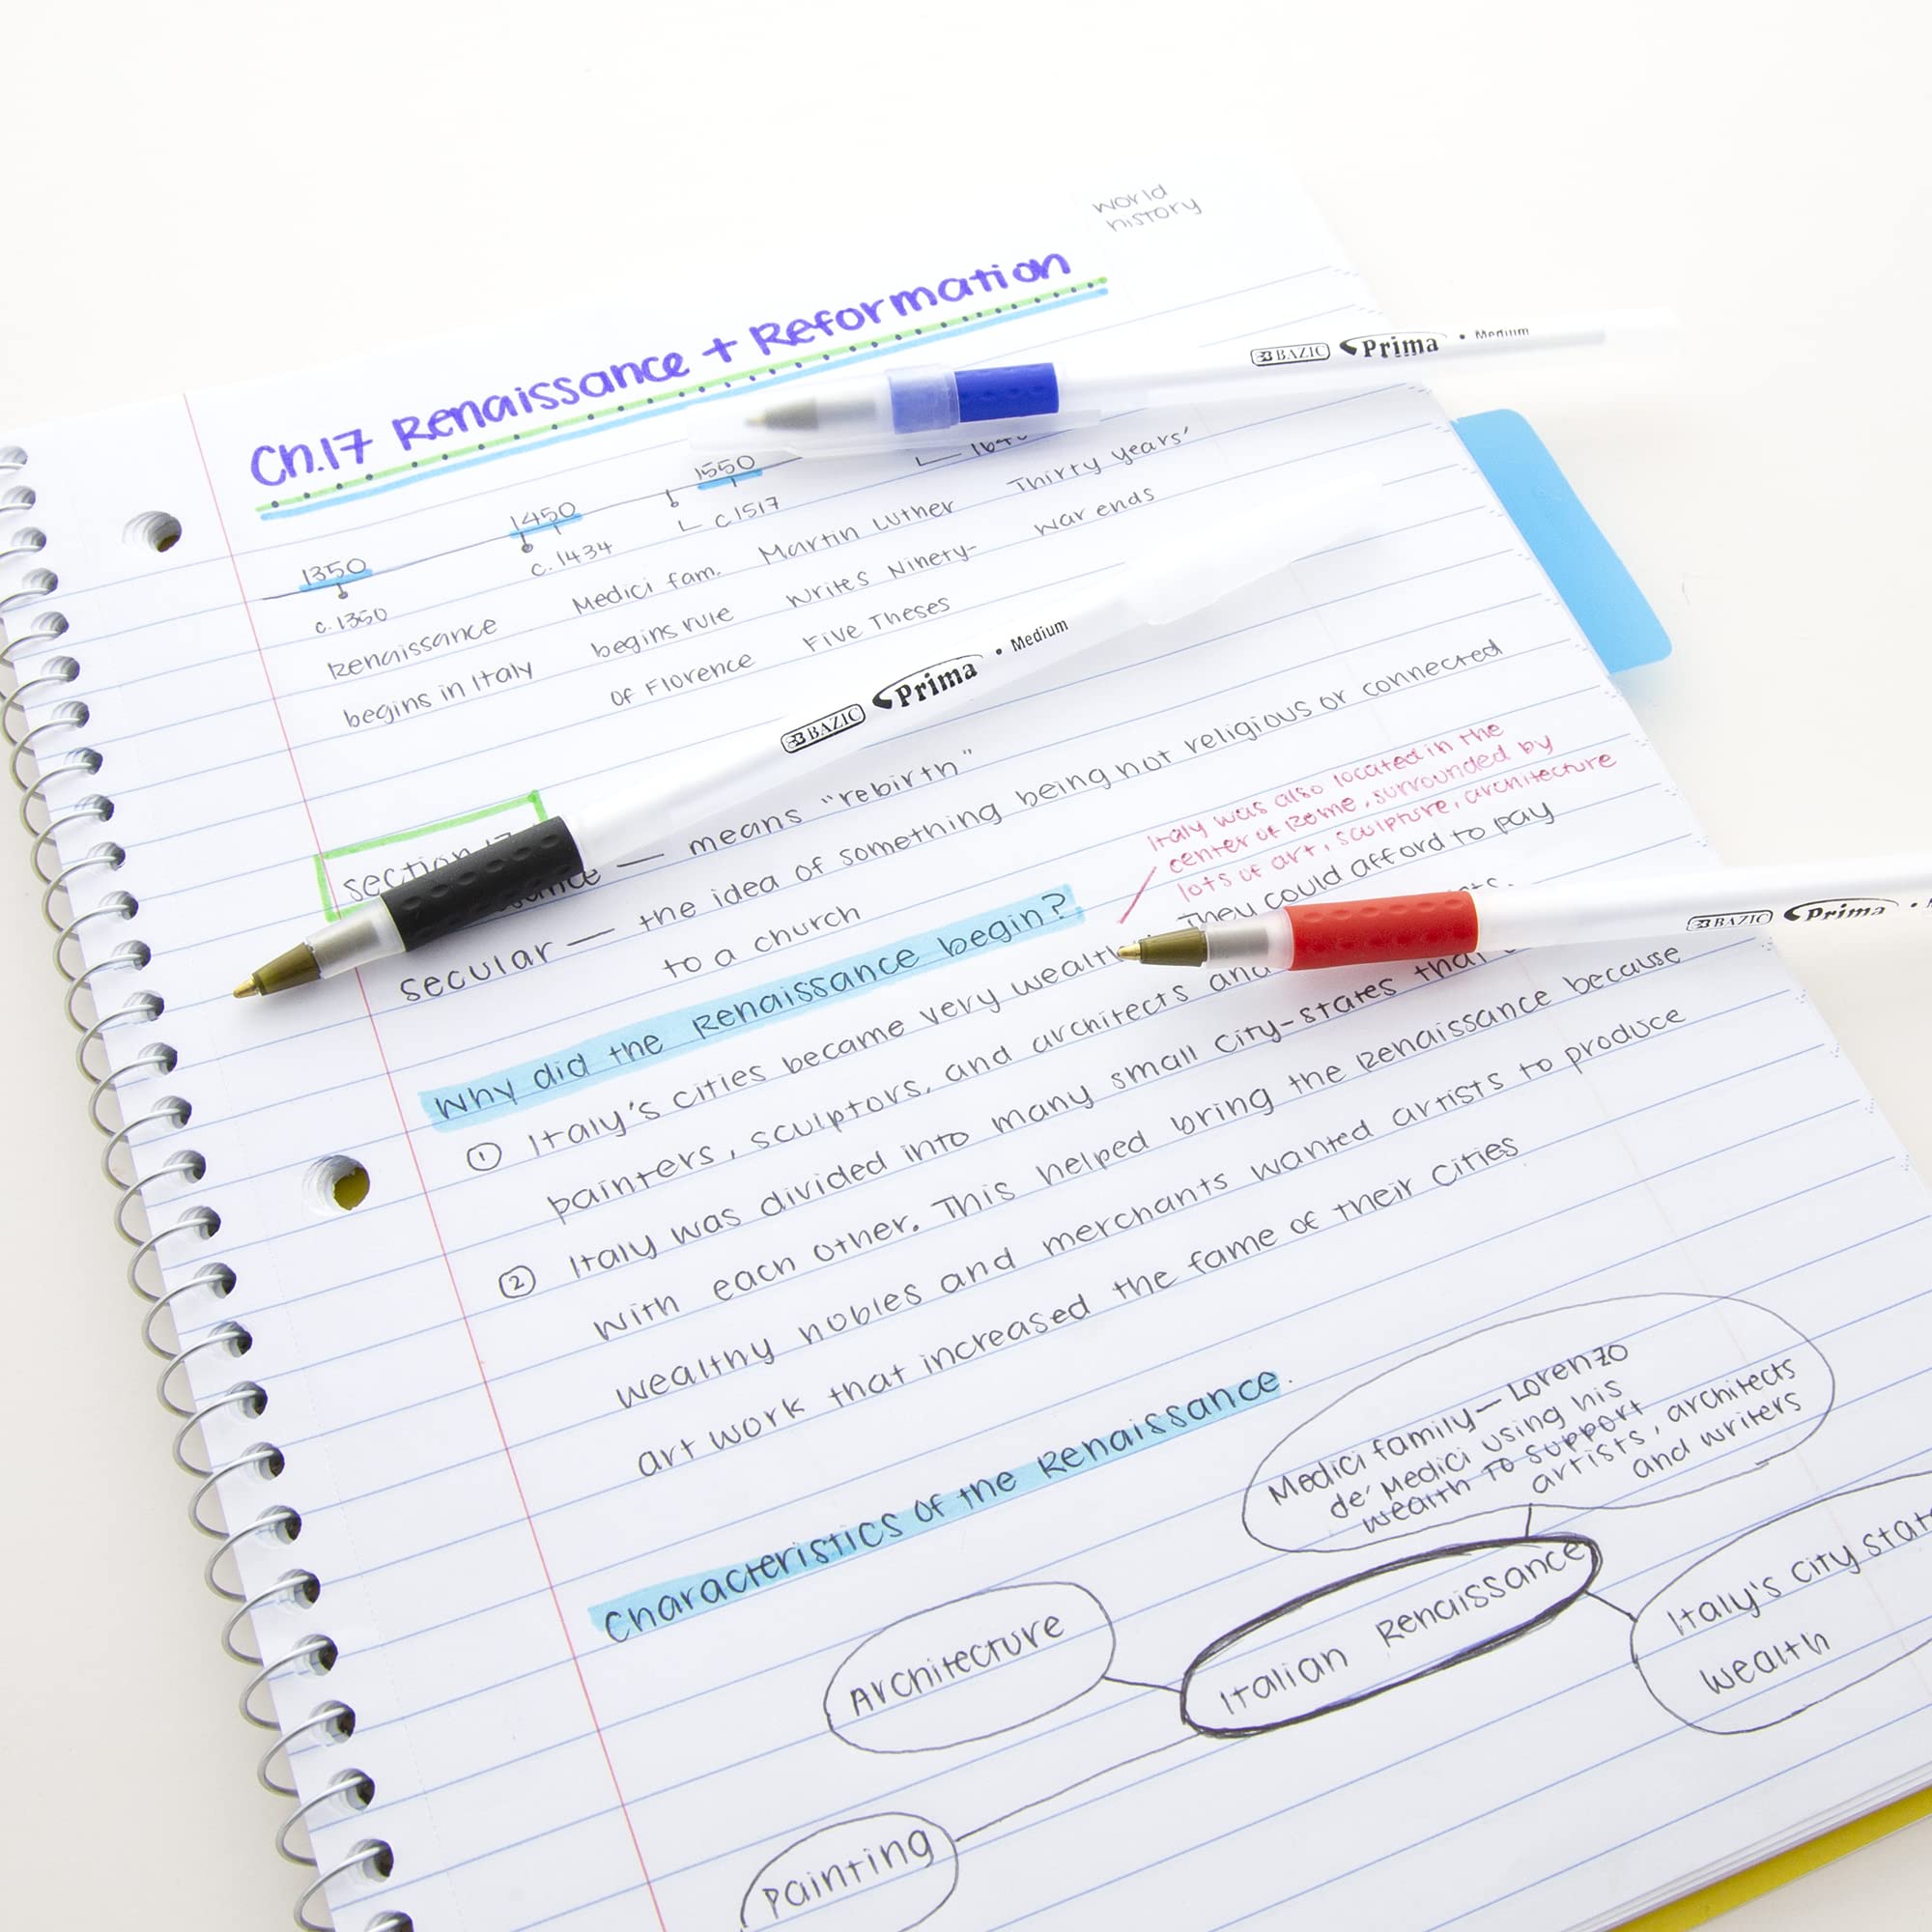 world
history
Ch.17 Renaissance + Reformation
1350
1450
1550
c. 1350
c. 1434
c 1517
Renaissance
begins in Italy
Medici fam.
begins rule
of Florence
Martin Luther
writes Ninety-
Five Theses
Thirty Years'
war ends
BAZIC Prima • Medium
BAZIC Prima • Medium
BAZIC Prima •
section 17
— means "rebirth"
secular — the idea of something being not religious or connected
to a church
Italy was also located in the
center of Rome, surrounded by
lots of art, sculpture, architecture
Why did the Renaissance begin?
① Italy's cities became very wealthy They could afford to pay
painters, sculptors, and architects and
② Italy was divided into many small city-states that
with each other. This helped bring the Renaissance because
wealthy nobles and merchants wanted artists to produce
art work that increased the fame of their cities
Characteristics of the Renaissance.
Medici family — Lorenzo
de' Medici using his
wealth to support
artists, architects
and writers
Italian Renaissance
Architecture
Italy's city
wealth
Painting